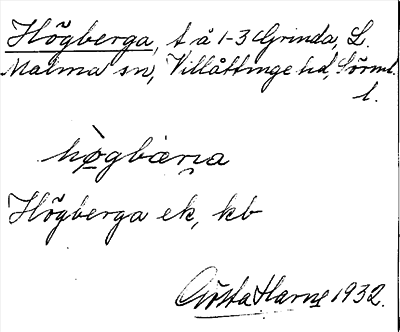 Högberga, t å 1-3 Grinda, L.
Malma sn, Villåttinge hd, Sörml.
l.
hògbærɲa
Högberga ek, kb
Gösta Harne 1932.